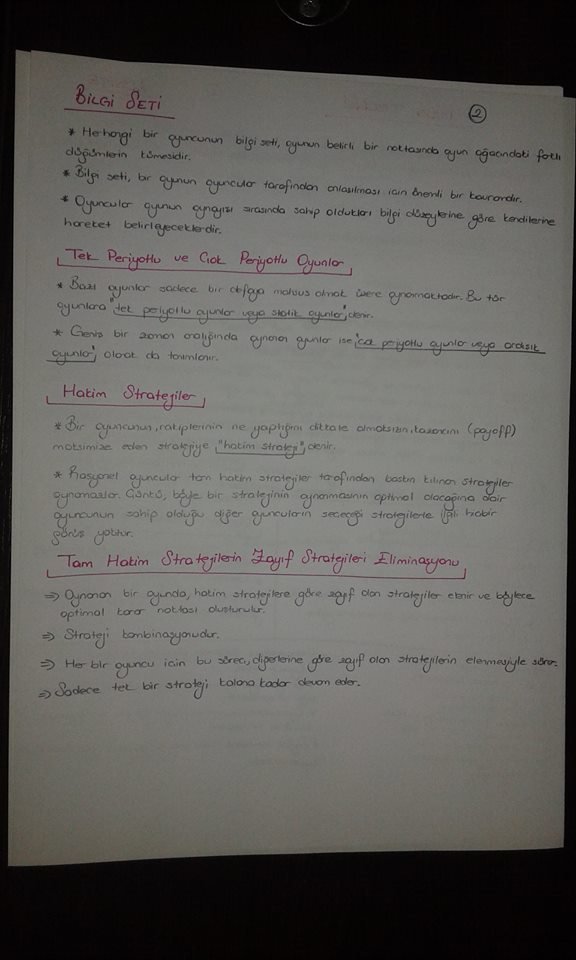 BİLGİ SETİ
2
* Herhangi bir oyuncunun bilgi seti, oyunun belirli bir noktasında oyun ağacındaki farklı
düğümlerin kümesidir.
* Bilgi seti, bir oyunun oyuncular tarafından anlaşılması için önemli bir kavramdır.
* Oyuncular oyunun oynayışı sırasında sahip oldukları bilgi düzeylerine göre kendilerine
hareket belirleyeceklerdir.
Tek Periyotlu ve Çok Periyotlu Oyunlar
* Bazı oyunlar sadece bir defaya mahsus olmak üzere oynanmaktadır. Bu tür
oyunlara "tek periyotlu oyunlar veya statik oyunlar" denir.
* Geniş bir zaman aralığında oynanan oyunlar ise "çok periyotlu oyunlar veya ardışık
oyunlar" olarak da tanımlanır.
Hakim Stratejiler
* Bir oyuncunun, rakiplerinin ne yaptığını dikkate almaksızın, kazancını (payoff)
maksimize eden stratejiye "hakim strateji" denir.
* Rasyonel oyuncular tam hakim stratejiler tarafından baskın kılınan stratejiler
oynamazlar. Çünkü, böyle bir stratejinin oynanmasının optimal olacağına dair
oyuncunun sahip olduğu diğer oyuncuların seçeceği stratejilerle ilgili hiçbir
görüş yoktur.
Tam Hakim Stratejilerin Zayıf Stratejileri Eliminasyonu
⇒ Oynanan bir oyunda, hakim stratejilere göre zayıf olan stratejiler elenir ve böylece
optimal karar noktası oluşturulur.
⇒ Strateji kombinasyonudur.
⇒ Her bir oyuncu için bu süreç, diğerlerine göre zayıf olan stratejilerin elenmesiyle sürer.
⇒ Sadece tek bir strateji kalana kadar devam eder.